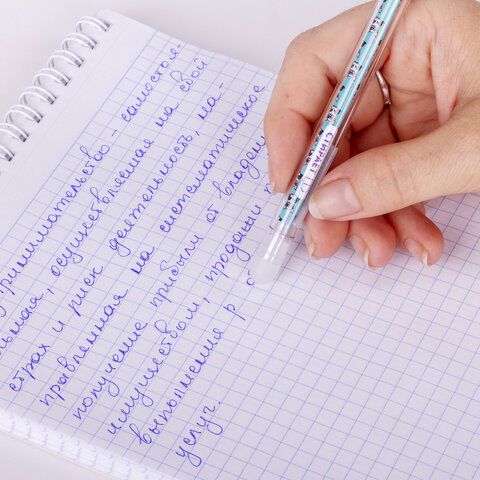 Предпринимательство - самостоя-
тельная, осуществляемая на свой
страх и риск деятельность, на-
правленная на систематическое
получение прибыли от владен
имуществом, продажи
выполнения р
услуг.
СТИРАЕТ